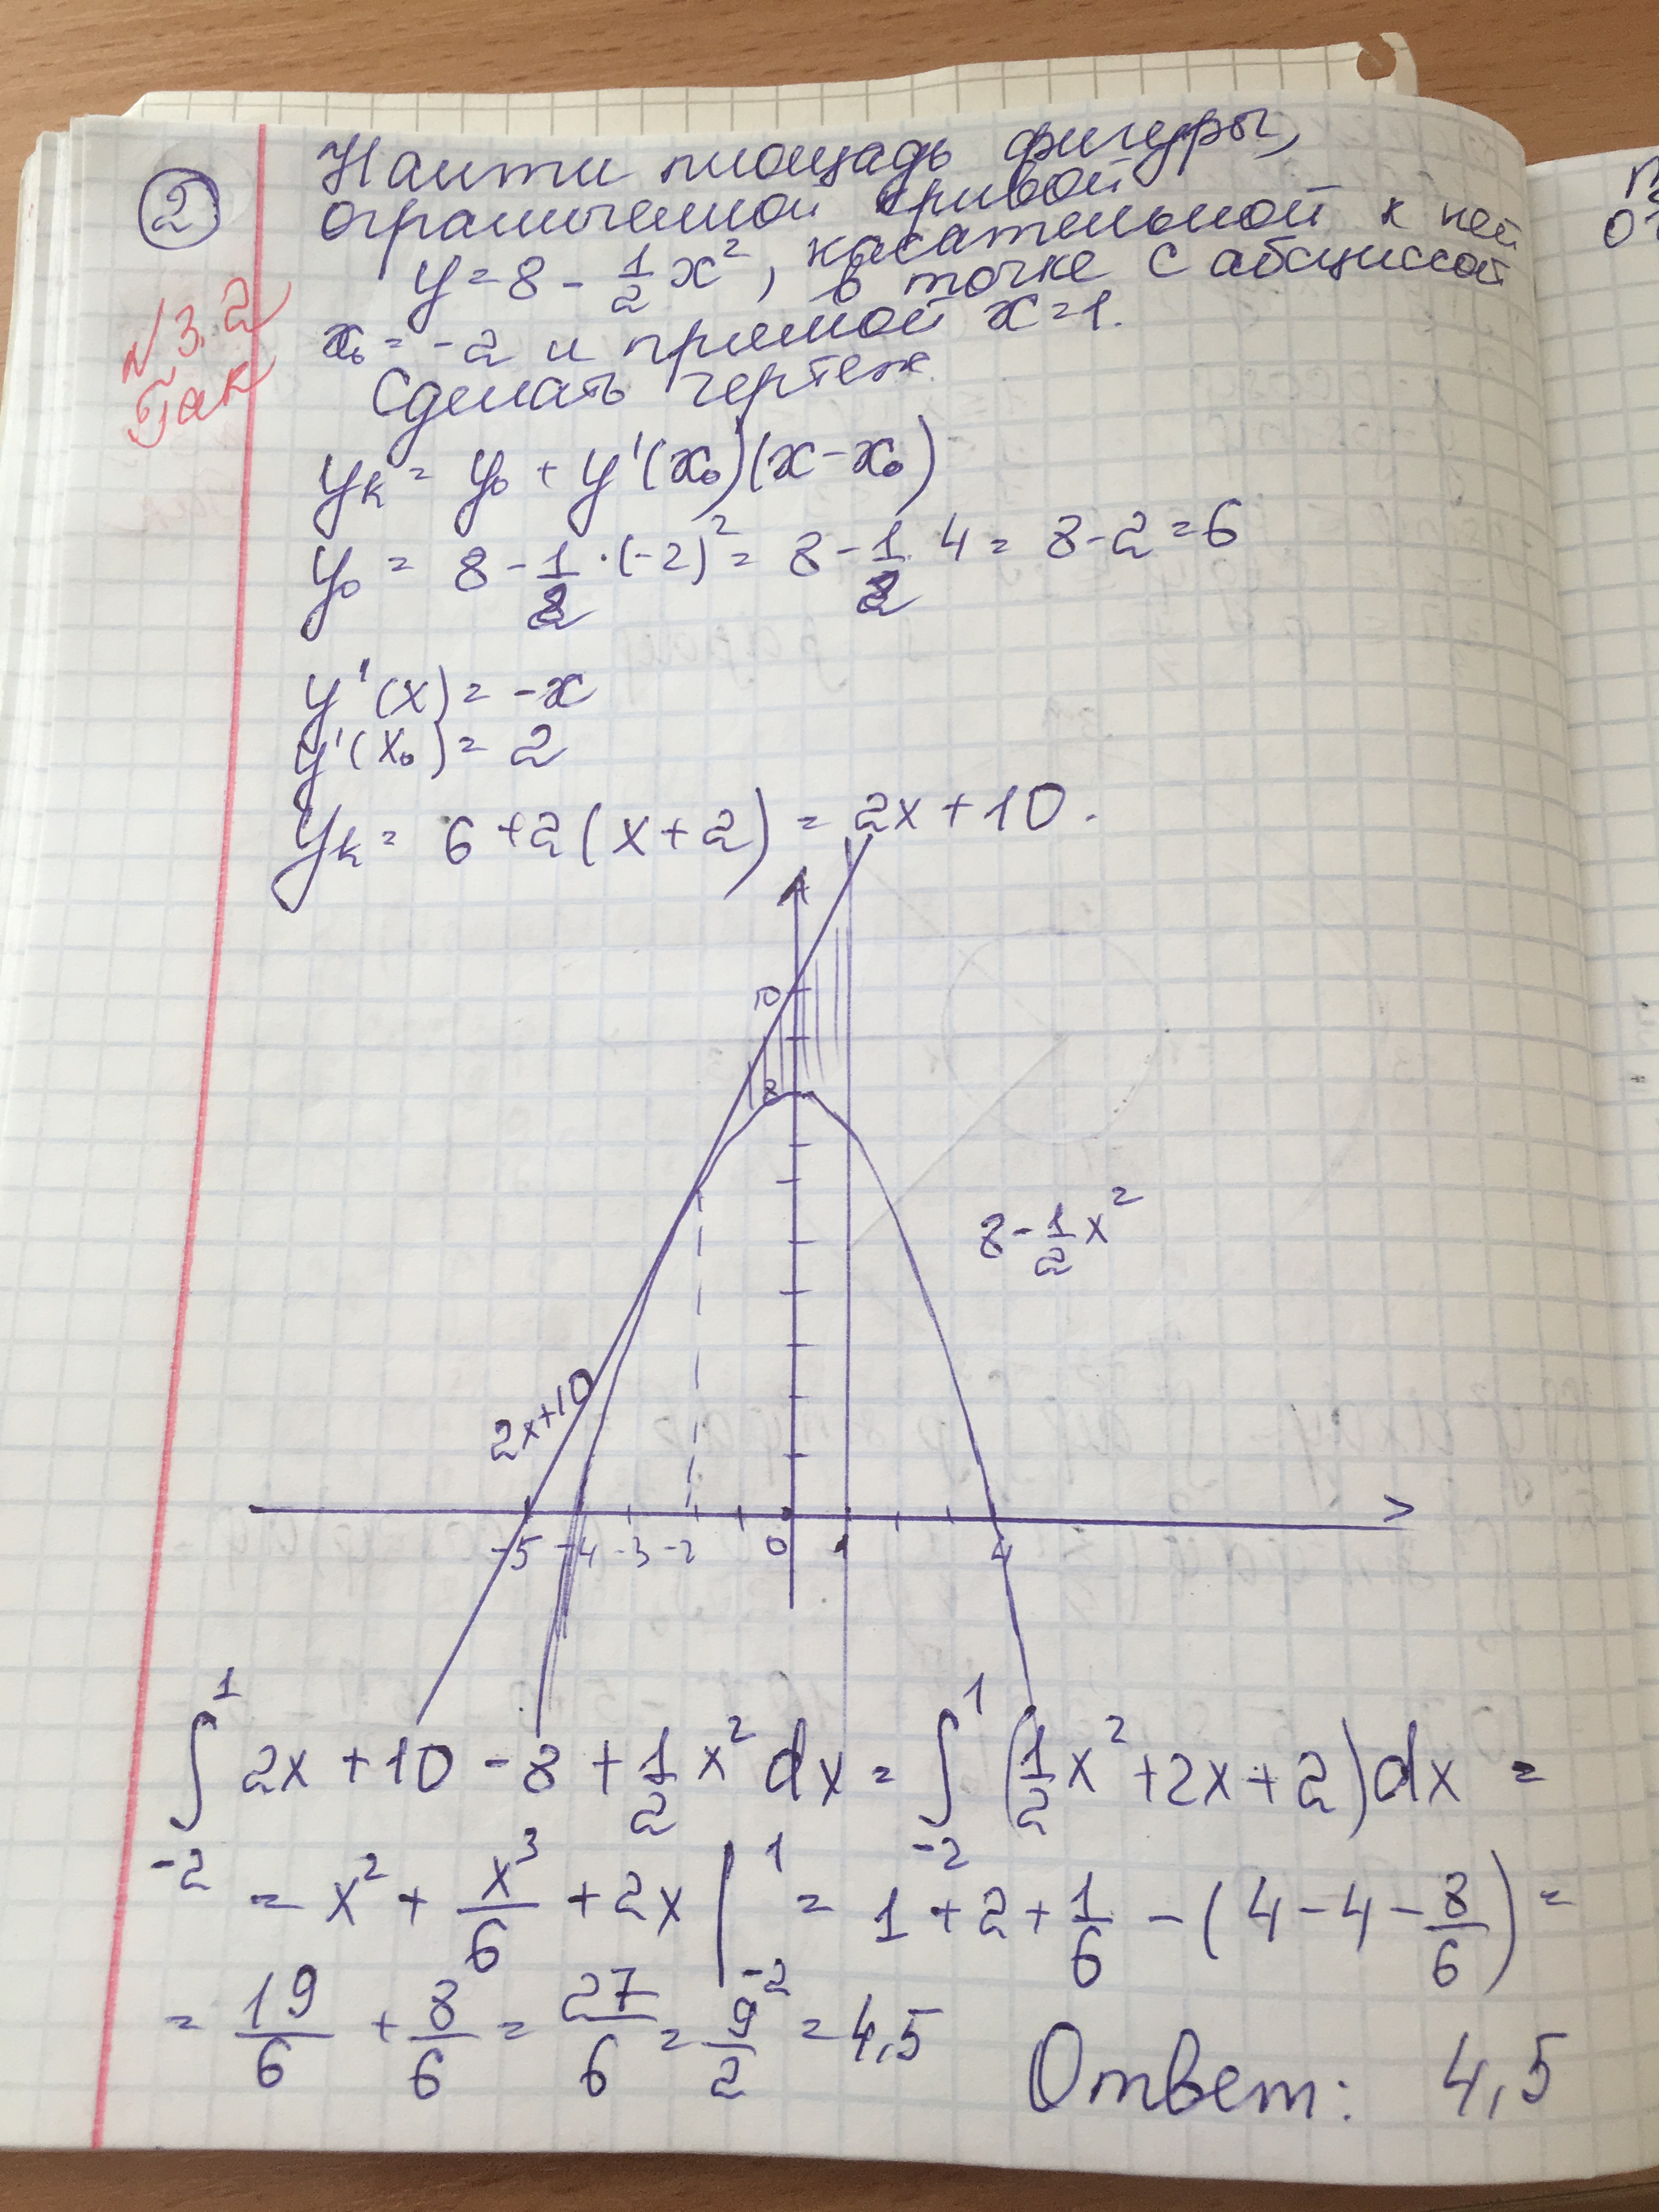 2
Найти площадь фигуры,
ограниченной кривой
y = 8 - 1/2 x², касательной к ней
в точке с абсциссой
x₀ = -2 и прямой x=1.
Сделать чертеж
№3.2
Гак
yₖ = y₀ + y'(x₀)(x-x₀)
y₀ = 8 - 1/2 · (-2)² = 8 - 1/2 · 4 = 8-2 = 6
y'(x) = -x
y'(x₀) = 2
yₖ = 6 + 2(x+2) = 2x+10.
10
8
8 - 1/2 x²
2x+10
-5 -4 -3 -2 0 1 4
∫₋₂¹ 2x + 10 - 8 + 1/2 x² dx = ∫₋₂¹ (1/2 x² + 2x + 2) dx =
= x² + x³/6 + 2x |₋₂¹ = 1 + 2 + 1/6 - (4 - 4 - 8/6) =
= 19/6 + 8/6 = 27/6 = 9/2 = 4,5 Ответ: 4,5